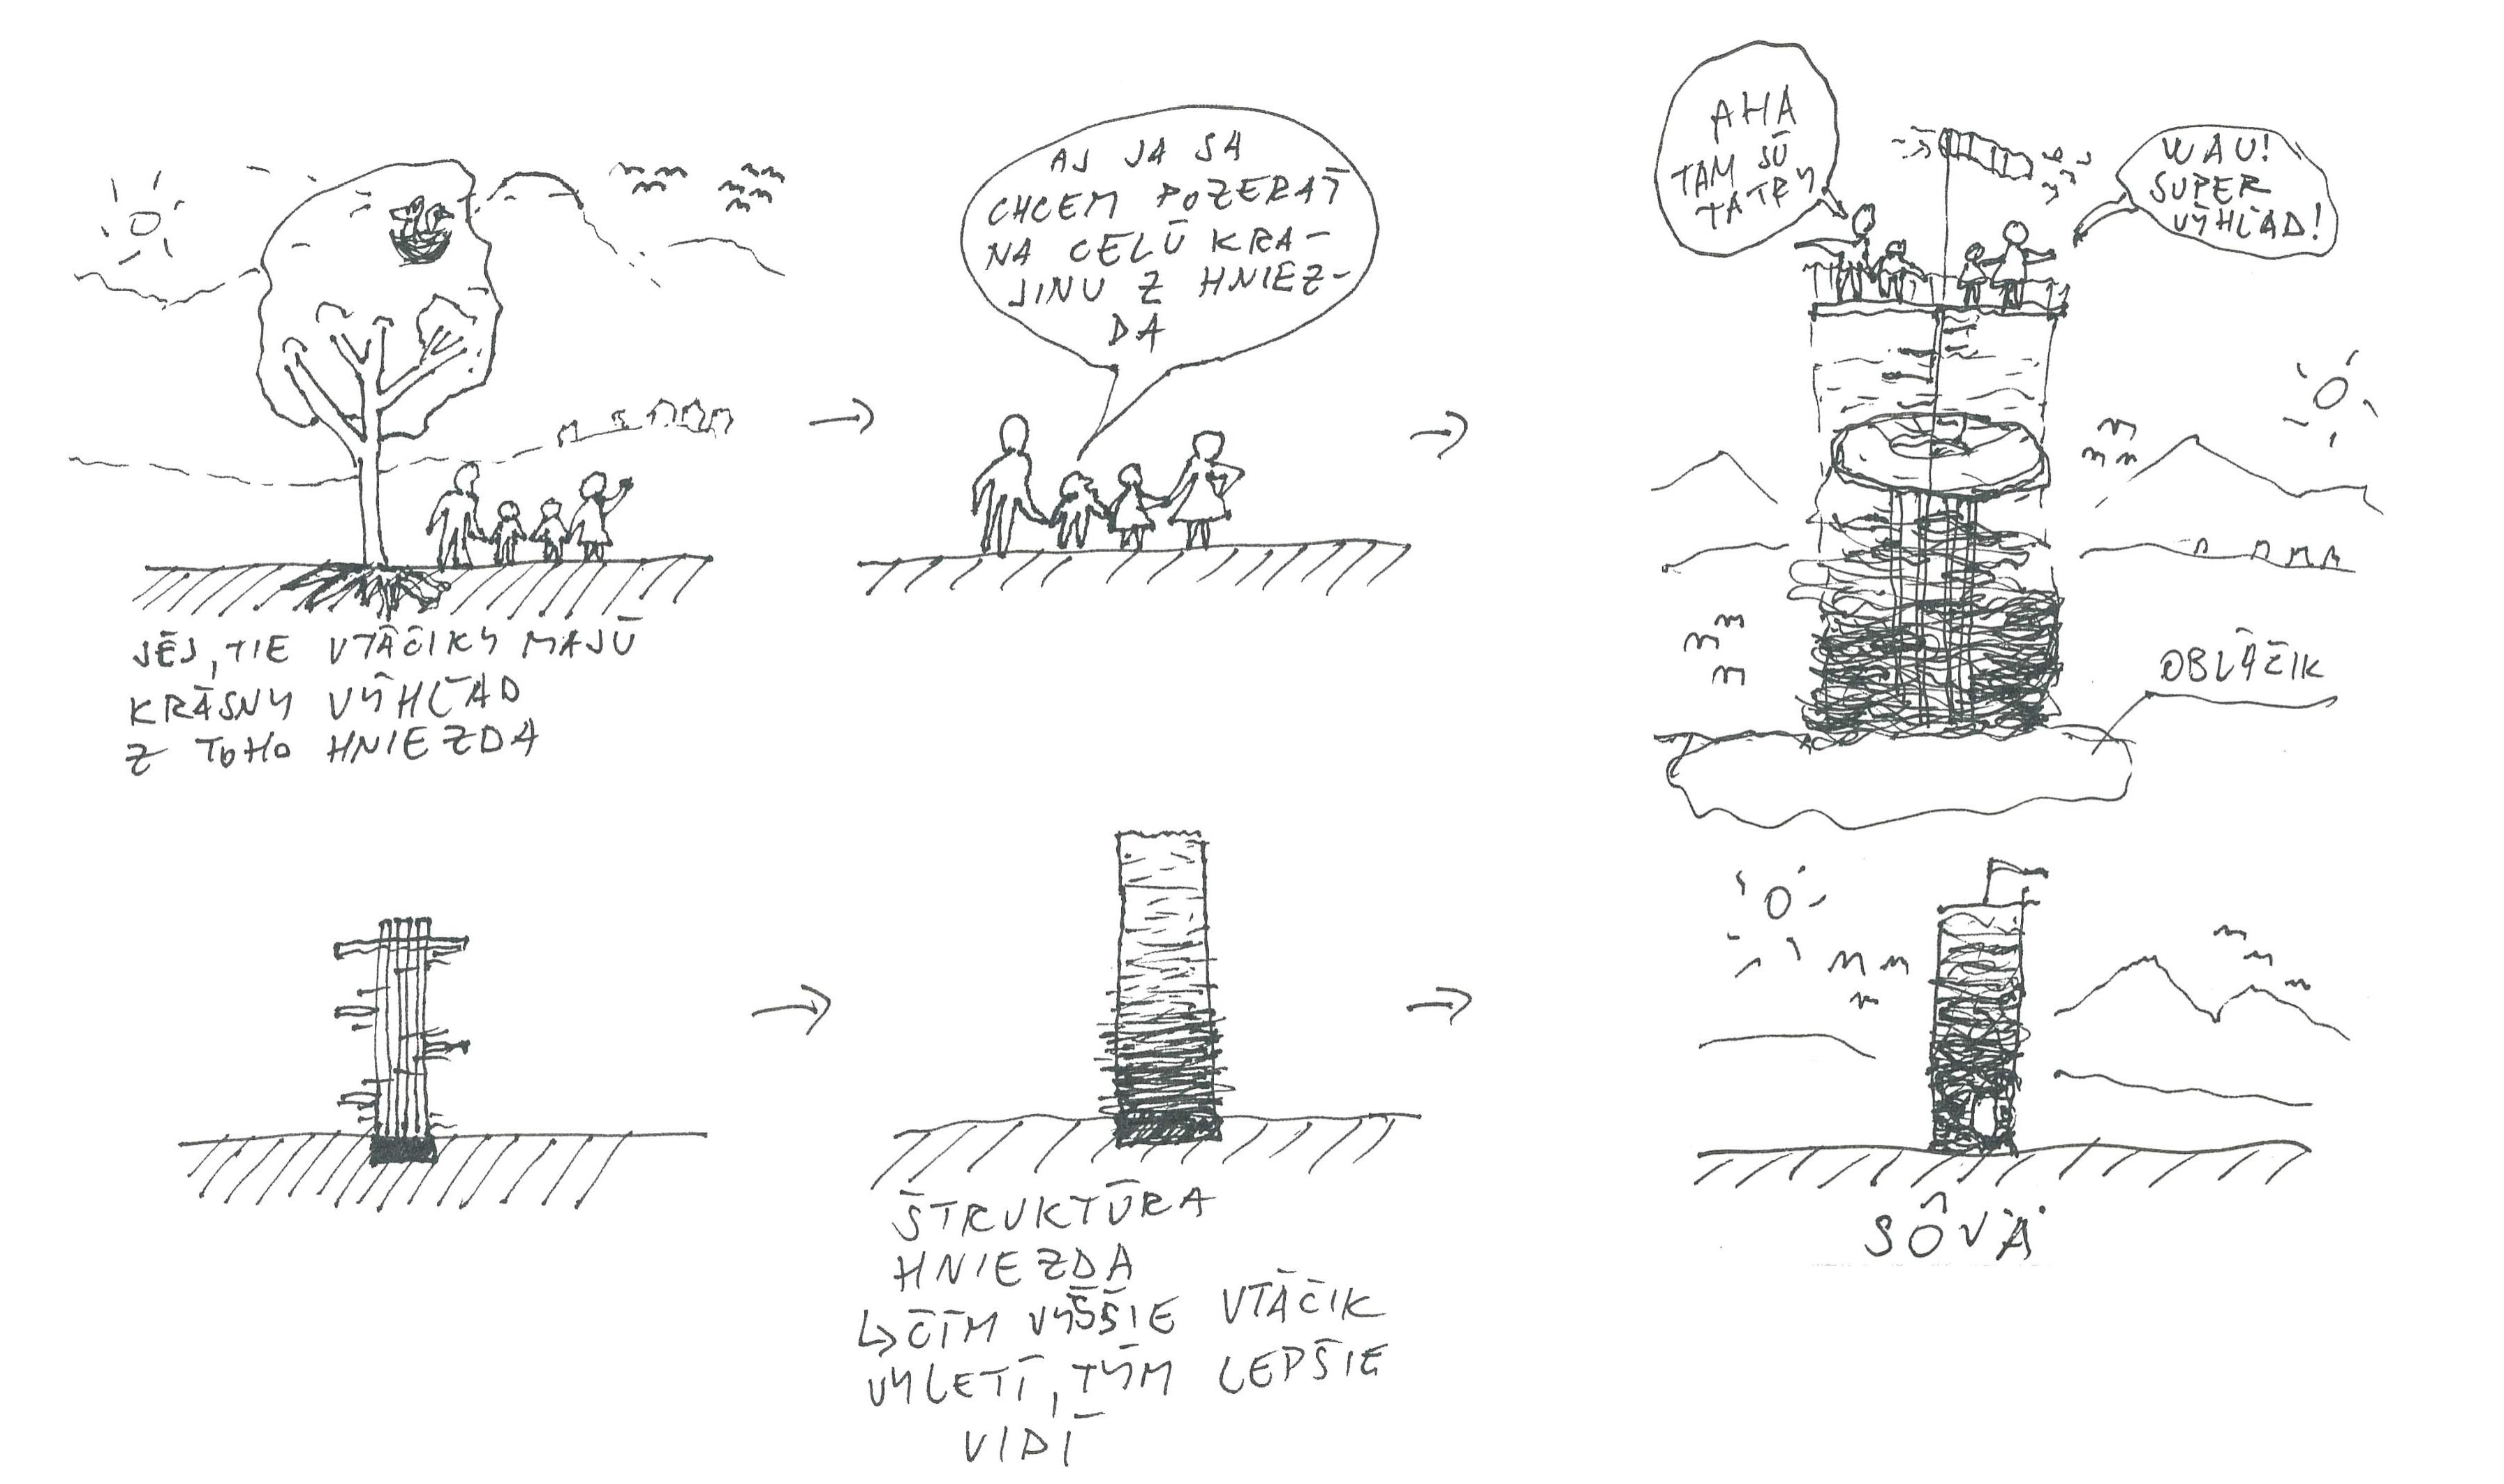 JÉJ, TIE VTÁČIKY MAJÚ
KRÁSNY VÝHĽAD
Z TOHO HNIEZDA
AJ JA SA
CHCEM POZERAŤ
NA CELÚ KRA-
JINU Z HNIEZ-
DA
AHA
TAM SÚ
TATRY
WAU!
SUPER
VÝHĽAD!
OBLÁČIK
ŠTRUKTÚRA
HNIEZDA
↳ ČÍM VYŠŠIE VTÁČIK
VYLETÍ, TÝM LEPŠIE
VIDÍ
SÔVÄ